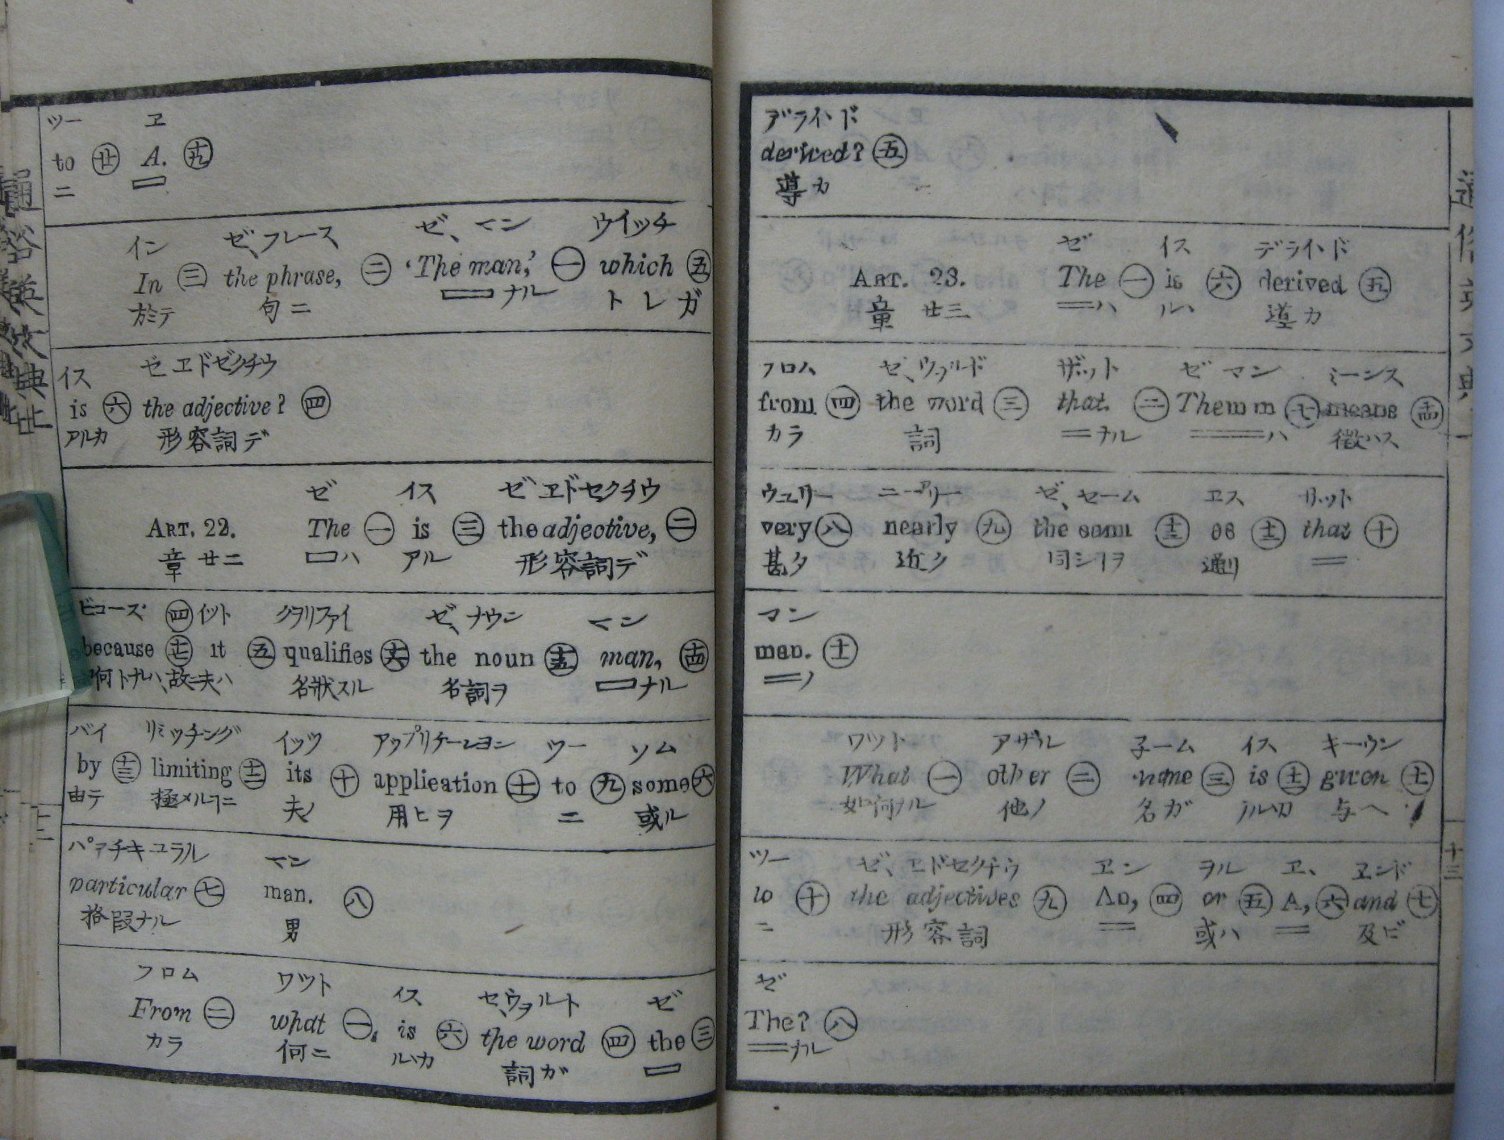 ツー ヱ
to 廿 A. 十九
ニ
イン ゼ、フレース ゼ、マン ウイッチ
In 三 the phrase, 二 ‘The man,’ 一 which 五
於テ 句ニ ナル トレガ
イス ゼヱドゼクチウ
is 六 the adjective? 四
アルカ 形容詞デ
ゼ イス ゼヱドセクチウ
ART. 22. The 一 is 三 the adjective, 二
章 廿二 ハ アル 形容詞デ
ビコーズ 四 イット クヲリファイ ゼ、ナウン マン
because 十七 it 五 qualifies 十六 the noun 十五 man, 十四
何トナレハ、故ニ夫ハ 名狀スル 名詞ヲ ナル
バイ リミッチング イッツ アップリケーション ツー ソム
by 十三 limiting 十二 its 十 application 十一 to 九 some 六
由テ 極メル 夫ノ 用ヒヲ ニ 或ル
パアチキユラル マン
particular 七 man. 八
格段ナル 男
フロム ワツト イス ゼ、ウヲルト ゼ
From 二 what 一 is 六 the word 四 the 三
カラ 何ニ ルカ 詞ガ
デライド
derived? 五
導カ
ゼ イス デライド
ART. 23. The 一 is 六 derived 五
章 廿三 ハ ルヽ 導カ
フロム ゼ、ウヲルド ザット ゼマン ミーンス
from 四 the word 三 that. 二 七 means 十四
カラ 詞 ナル ハ 徴ハス
ウェリー ニーアリー ゼ、セーム ヱス ザット
very 八 nearly 九 the 十三 as 十二 that 十
甚タ 近ク 同シリヲ 通リ
マン
man. 十一
ノ
ワツト アザル 子ーム イス キーウン
What 一 other 二 name 三 is 十二 given 十一
如何ナル 他ノ 名ガ ルヽカ 与ヘ
ツー ゼ、ヱドセクチウ ヱン ヲル ヱ、 ヱンド
to 十 the adjectives 九 An, 四 or 五 A, 六 and 七
ニ 形容詞 或ハ 及ビ
ゼ
The? 八
ナル
十三